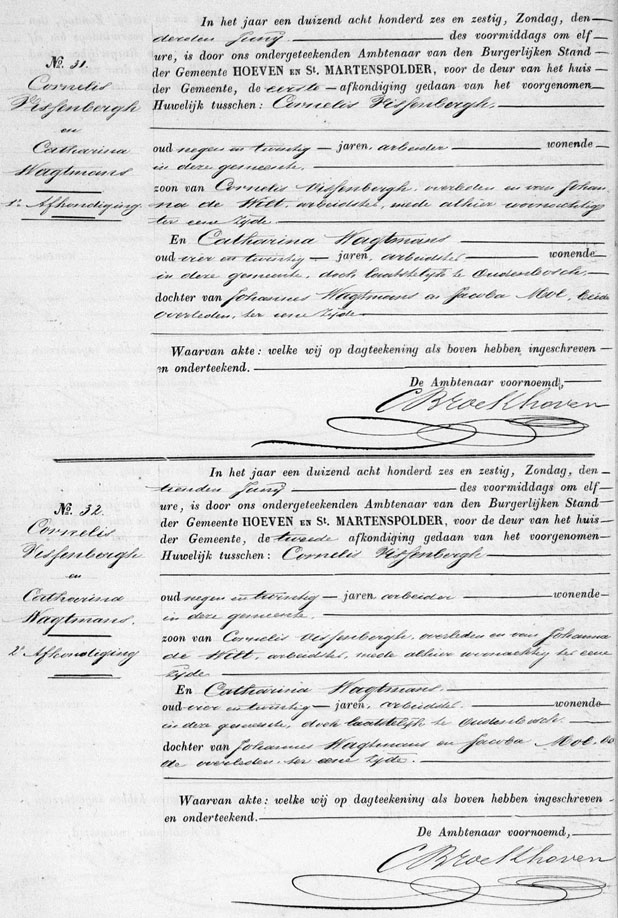 In het jaar een duizend acht honderd zes en zestig, Zondag, den
derden Junij des voormiddags om elf
ure, is door ons ondergeteekenden Ambtenaar van den Burgerlijken Stand
der Gemeente HOEVEN EN St. MARTENSPOLDER, voor de deur van het huis
der Gemeente, de eerste afkondiging gedaan van het voorgenomen
Huwelijk tusschen: Cornelis Vissenbergh.
No. 31.
Cornelis
Vissenbergh
en
Catharina
Wagtmans
1e Afkondiging
oud negen en twintig jaren, arbeider wonende
in deze gemeente.
zoon van Cornelis Vissenbergh, overleden en van Johan
na de Wilt, arbeidster, mede alhier woonachtig
ter eene zijde
En Catharina Wagtmans
oud vier en twintig jaren, arbeidster wonende
in deze gemeente, doch laatstelijk te Oudenbosch.
dochter van Johannes Wagtmans en Jacoba Mol, beide
overleden, ter eene zijde
Waarvan akte: welke wij op dagteekening als boven hebben ingeschreven
en onderteekend.
De Ambtenaar voornoemd,
C Broekhoven
In het jaar een duizend acht honderd zes en zestig, Zondag, den
tienden Junij des voormiddags om elf
ure, is door ons ondergeteekenden Ambtenaar van den Burgerlijken Stand
der Gemeente HOEVEN EN St. MARTENSPOLDER, voor de deur van het huis
der Gemeente, de tweede afkondiging gedaan van het voorgenomen
Huwelijk tusschen: Cornelis Vissenbergh
No. 32.
Cornelis
Vissenbergh
en
Catharina
Wagtmans.
2e Afkondiging
oud negen en twintig jaren arbeider wonende
in deze gemeente.
zoon van Cornelis Vissenbergh, overleden en van Johanna
de Wilt, arbeidster, mede alhier woonachtig ter eene
zijde
En Catharina Wagtmans.
oud vier en twintig jaren, arbeidster. wonende
in deze gemeente, doch laatstelijk te Oudenbosch.
dochter van Johannes Wagtmans en Jacoba Mol. bei
de overleden, ter eene zijde.
Waarvan akte: welke wij op dagteekening als boven hebben ingeschreven
en onderteekend.
De Ambtenaar voornoemd,
C Broekhoven